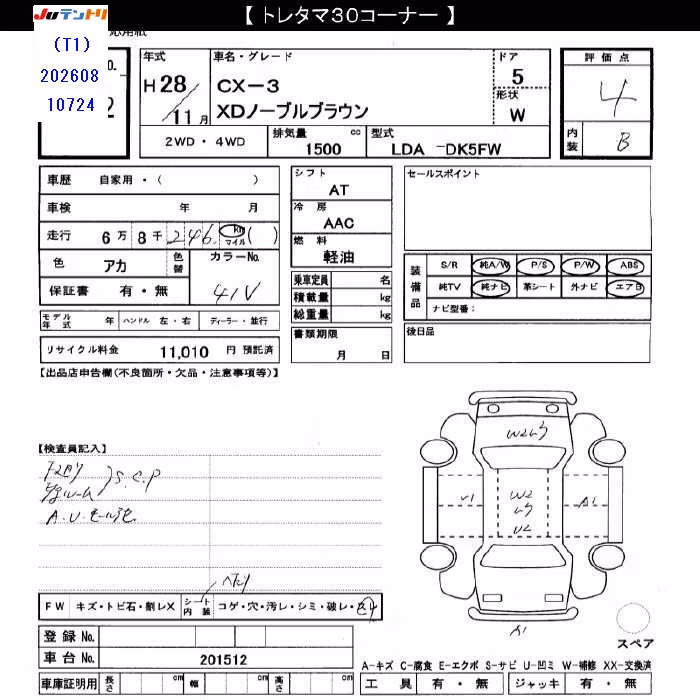 【 トレタマ30コーナー 】
JUテントリ
(T1)
202608
10724
応用紙
No.
2
年式
H28/11月
車名・グレード
CX-3
XDノーブルブラウン
ドア
5
形状
W
評価点
4
内装
B
2WD・4WD
排気量
cc
1500
型式
LDA -DK5FW
車歴 自家用・( )
車検 年 月
走行 6万 8千 246. km マイル ( )
色 アカ 色替 カラーNo.
保証書 有・無 41V
モデル年式 年 ハンドル 左・右 ディーラー・並行
リサイクル料金 11,010 円 預託済
シフト
AT
冷房
AAC
燃料
軽油
乗車定員 名
積載量 kg
総重量 kg
書類期限
月 日
セールスポイント
装備品
S/R 純A/W P/S P/W ABS
純TV 純ナビ 革シート 外ナビ エアB
ナビ型番:
後日品
【出品店申告欄(不良箇所・欠品・注意事項等)】
【検査員記入】
S.C.P
A.U.モール
FW キズ・トビ石・割レX
シート内装 コゲ・穴・汚レ・シミ・破レ・
ヘタリ
登録No.
車台No. 201512
車庫証明用 長さ cm 幅 cm 高さ cm
W2
U2
A1
A1
スペア
A-キズ C-腐食 E-エクボ S-サビ U-凹ミ W-補修 XX-交換済
工具 有・無 ジャッキ 有・無